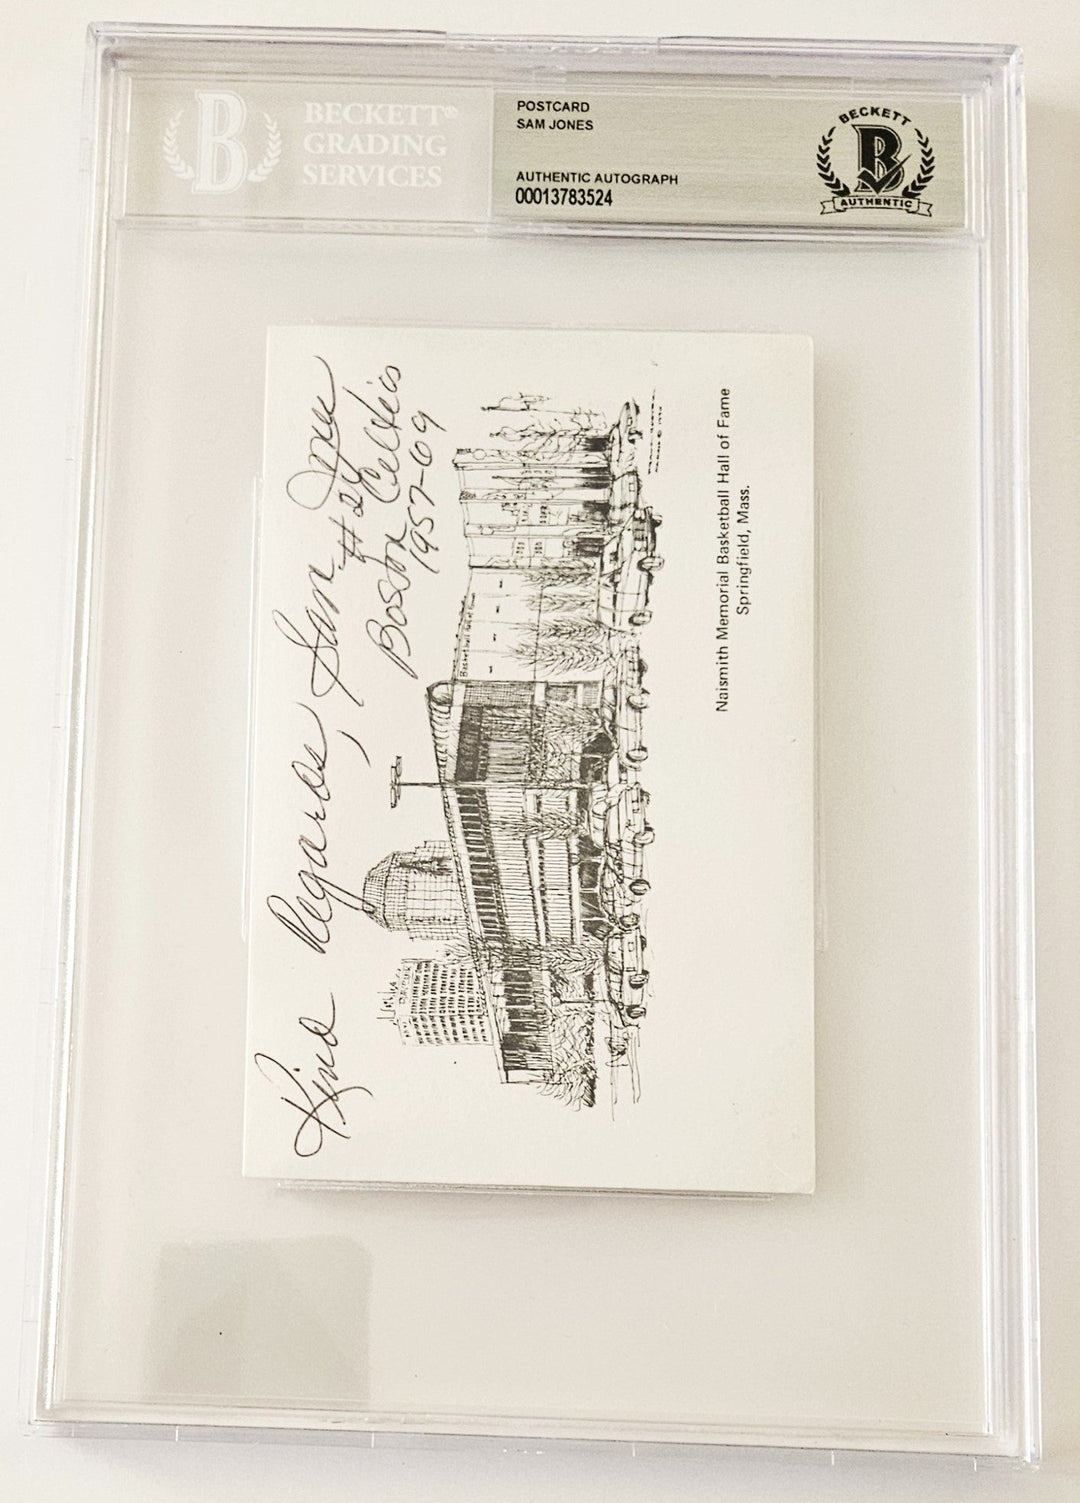 BECKETT®
GRADING
SERVICES
POSTCARD
SAM JONES
AUTHENTIC AUTOGRAPH
00013783524
BECKETT
B
AUTHENTIC
B
Kind Regards, Sam Jones
#24
Boston Celtics
1957-69
Basketball Hall of Fame
Naismith Memorial Basketball Hall of Fame
Springfield, Mass.